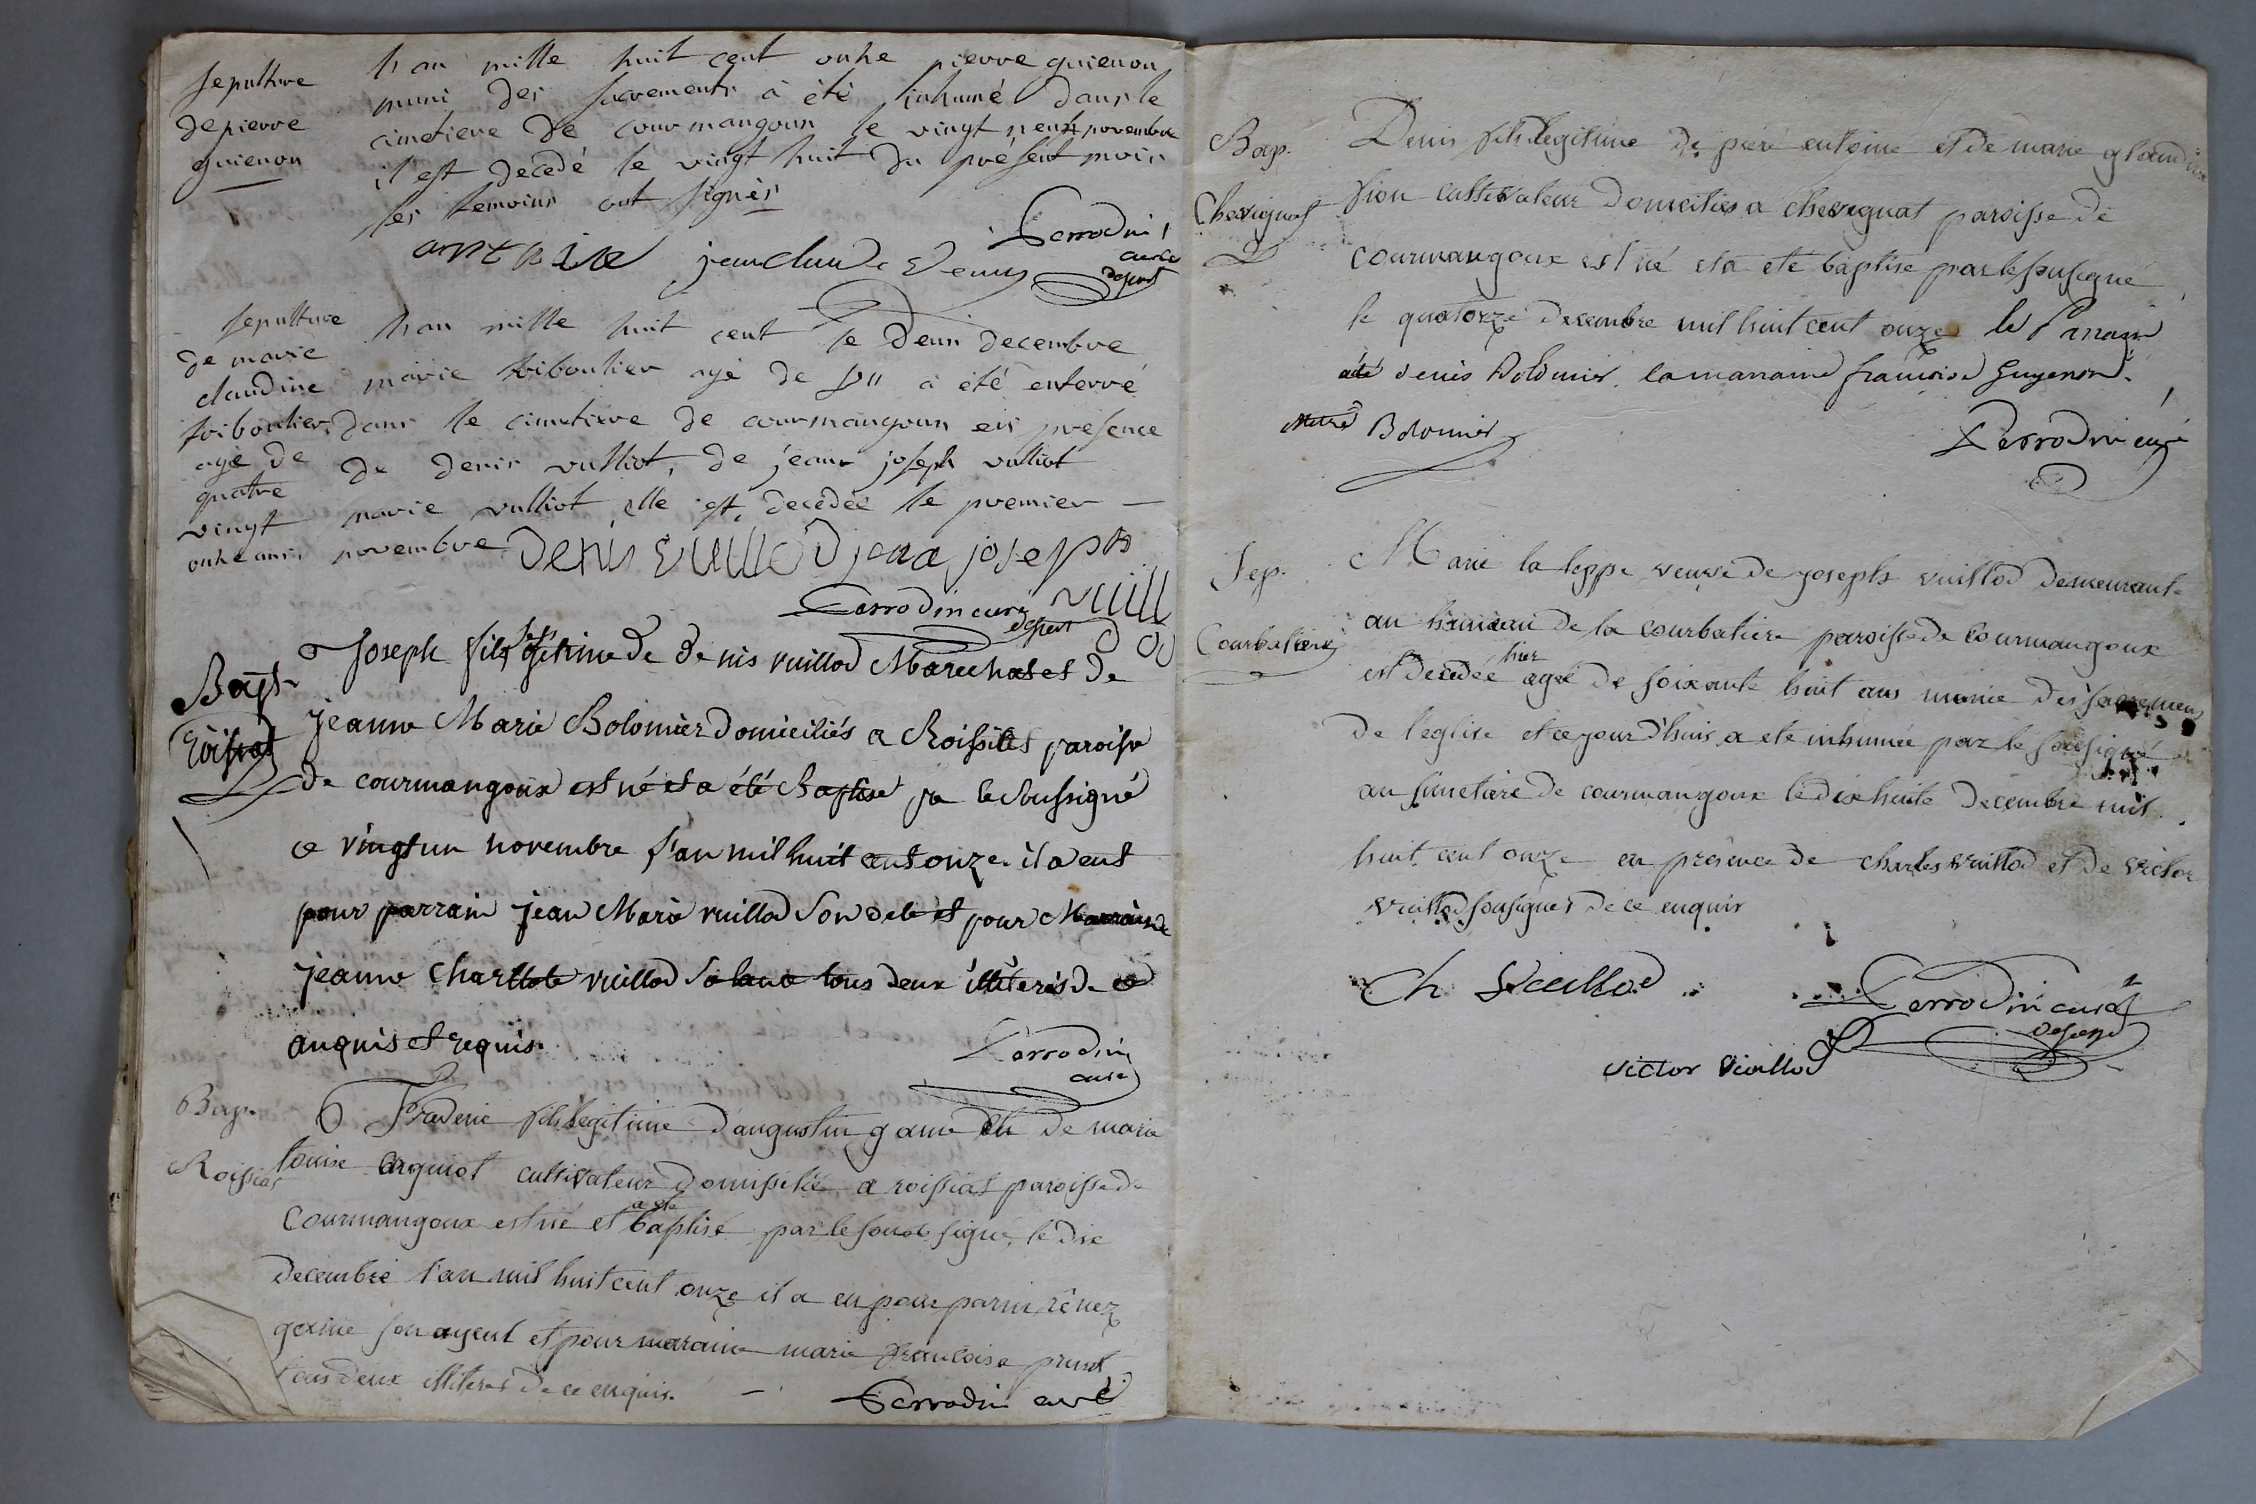 Sepulture
de pierre
guienon
l'an mille huit cent onhe pierre guienon
muni des sacrements à été inhumé dans le
cimetiere de courmangoux le vingt neuf novembre
il est decedé le vingt huit du présent mois
les temoins ont signès
antoine jean claude Denis
Perrodin
curé
desser
Sepulture
de marie
claudine
triboulier
agé de
quatre
vingt
onhe ans
l'an mille huit cent le Deux decembre
marie triboulier agé de à été enterré
dans le cimetiere de courmangoux en présence
de denis vulliot, de jean joseph vulliot
marie vulliot elle est decedée le premier
novembre Denis Vuillod jean joseph
Perrodin curé vuill
dessert od
Bapt.
Roissiat
Joseph fils légitime de denis vuillod Marechal et de
jeanne Marie Bolomier domiciliés a Roissiat paroisse
de courmangoux est né et a été Baptisé par le Soussigné
ce vingt un novembre l'an mil huit cent onze. il a eut
pour parrain jean Marie vuillod Son et pour Marraine
jeanne Charllote vuillod Sa tante tous deux illiterés de ce
anquis et requis.
Perrodin
curé
Bap.
Roissiat
Frederic fils legitime d'augustin game et de marie
louise cultivateur domisilié a roissiat paroisse de
a été
Courmangoux est né et baptisé par le sous signé, le dix
decembre l'an mil huit cent onze il a eu pour parin rénez
game son ayeul et pour maraine marie francoise prust
tous deux illiteres de ce enquis.
Perrodin curé
Bap.
Chevignat
Denis fils legitime de piere entoine et de marie glaudine
pion cultivateur domicilies a chevignat paroisse de
courmangoux est né et a été baptisé par le sousigné
le quatorze decembre mil huit cent onze le Parrain
été denis Bolomier. la marraine francoise Guyenon.
Bolomier
Perrodin curé
Sep.
Courbatiere
Marie la leppe veuve de joseph vuillod demeurant
au hameau de la courbatiere paroisse de courmangoux
hier
est decedée agée de soixante huit ans munie des sacremens
de l'eglise et ce jour d'huis a ete inhumée par le sousigné
au simetiere de courmangoux le dix huite decembre mil
huit cent onze en présence de charles vuillod et de victor
vuillod sousignes de ce enquis
Ch Vuillod
Perrodin curé
desser
victor vuillod